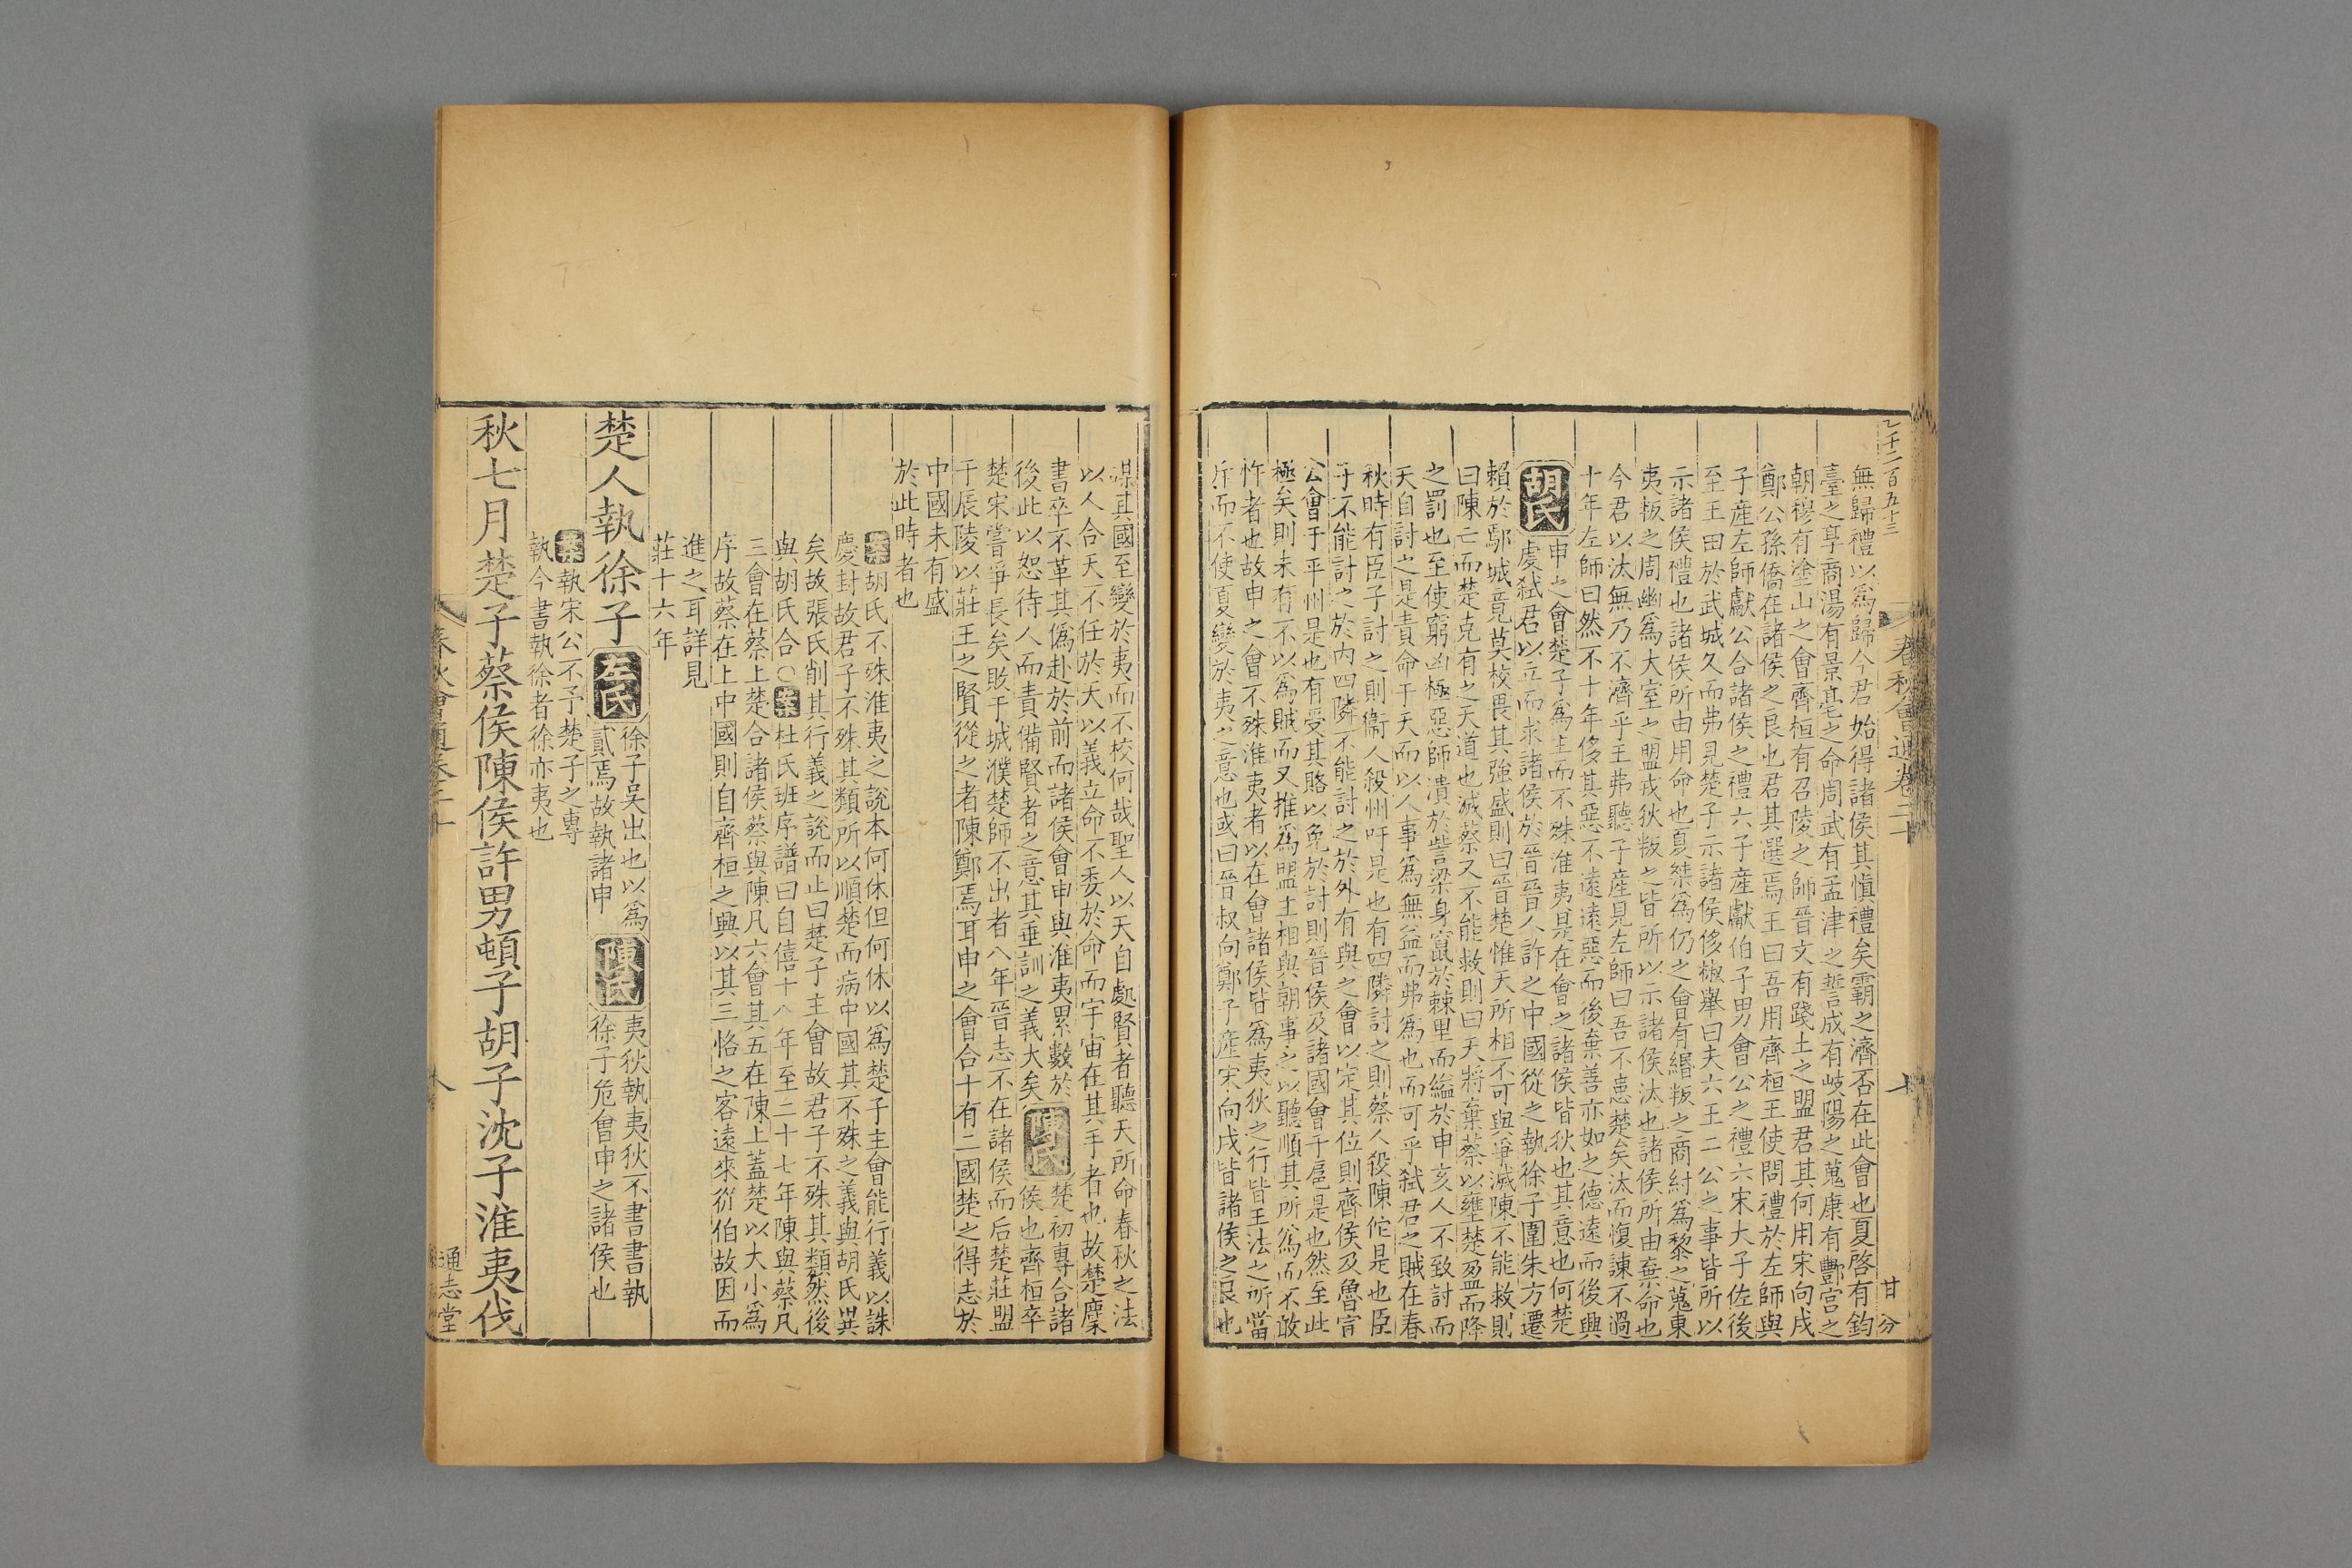 乙千二百五十三
春秋會通卷二十
十
甘
分
無歸禮以爲歸今君始得諸侯其愼禮矣霸之濟否在此會也夏啓有鈞
臺之享商湯有景亳之命周武有孟津之誓成有岐陽之蒐康有酆宮之
朝穆有塗山之會齊桓有召陵之師晉文有踐土之盟君其何用宋向戌
鄭公孫僑在諸侯之良也君其選焉王曰吾用齊桓王使問禮於左師與
子産左師獻公合諸侯之禮六子産獻伯子男會公之禮六宋大子佐後
至王田於武城久而弗見楚子示諸侯侈椒舉曰夫六王二公之事皆所以
示諸侯禮也諸侯所由用命也夏桀爲仍之會有緡叛之商紂爲黎之蒐東
夷叛之周幽爲大室之盟戎狄叛之皆所以示諸侯汰也諸侯所由棄命也
今君以汰無乃不濟乎王弗聽子産見左師曰吾不患楚矣汰而愎諫不過
十年左師曰然不十年侈其惡不遠遠惡而後棄善亦如之德遠而後興
胡氏
申之會楚子爲主而不殊淮夷是在會之諸侯皆狄也其意也何楚
虔弑君以立而求諸侯於晉晉人許之中國從之執徐子圍朱方遷
賴於鄢城竟莫校畏其強盛則曰晉楚惟天所相不可與爭滅陳不能救則
曰陳亡而楚克有之天道也滅蔡又不能救則曰天將棄蔡以壅楚盈而降
之罰也至使窮凶極惡師潰於訾梁身竄於棘里而縊於申亥人不致討而
天自討之是責命于天而以人事爲無益而弗爲也而可乎弑君之賊在春
秋時有臣子討之則衞人殺州吁是也有四隣討之則蔡人殺陳佗是也臣
子不能討之於内四隣不能討之於外有與之會以定其位則齊侯及魯宣
公會于平州是也有受其賂以免於討則晉侯及諸國會于扈是也然至此
極矣則未有不以爲賊而又推爲盟主相與朝事之以聽順其所爲而不敢
忤者也故申之會不殊淮夷者以在會諸侯皆爲夷狄之行皆王法之所當
斥而不使夏變於夷之意也或曰晉叔向鄭子産宋向戌皆諸侯之良也
謀其國至變於夷而不校何哉聖人以天自處賢者聽天所命春秋之法
以人合天不任於天以義立命不委於命而宇宙在其手者也故楚麇
書卒不革其僞赴於前而諸侯會申與淮夷累數於
後此以恕待人而責備賢者之意其垂訓之義大矣
陳氏
楚初專合諸
侯也齊桓卒
楚宋嘗爭長矣敗于城濮楚師不出者八年晉志不在諸侯而后楚莊盟
于辰陵以莊王之賢從之者陳鄭焉耳申之會合十有二國楚之得志於
中國未有盛
於此時者也
案胡氏不殊淮夷之說本何休但何休以爲楚子主會能行義以誅
慶封故君子不殊其類所以順楚而病中國其不殊之義與胡氏異
矣故張氏削其行義之說而止曰楚子主會故君子不殊其類然後
與胡氏合○案杜氏班序譜曰自僖十八年至二十七年陳與蔡凡
三會在蔡上楚合諸侯蔡與陳凡六會其五在陳上蓋楚以大小爲
序故蔡在上中國則自齊桓之興以其三恪之客遠來從伯故因而
進之耳詳見
莊十六年
楚人執徐子
左氏
徐子吳出也以爲
貳焉故執諸申
陳氏
夷狄執夷狄不書書執
徐子危會申之諸侯也
案執宋公不予楚子之專
執今書執徐者徐亦夷也
秋七月楚子蔡侯陳侯許男頓子胡子沈子淮夷伐
春秋會通卷二十
十
通志堂